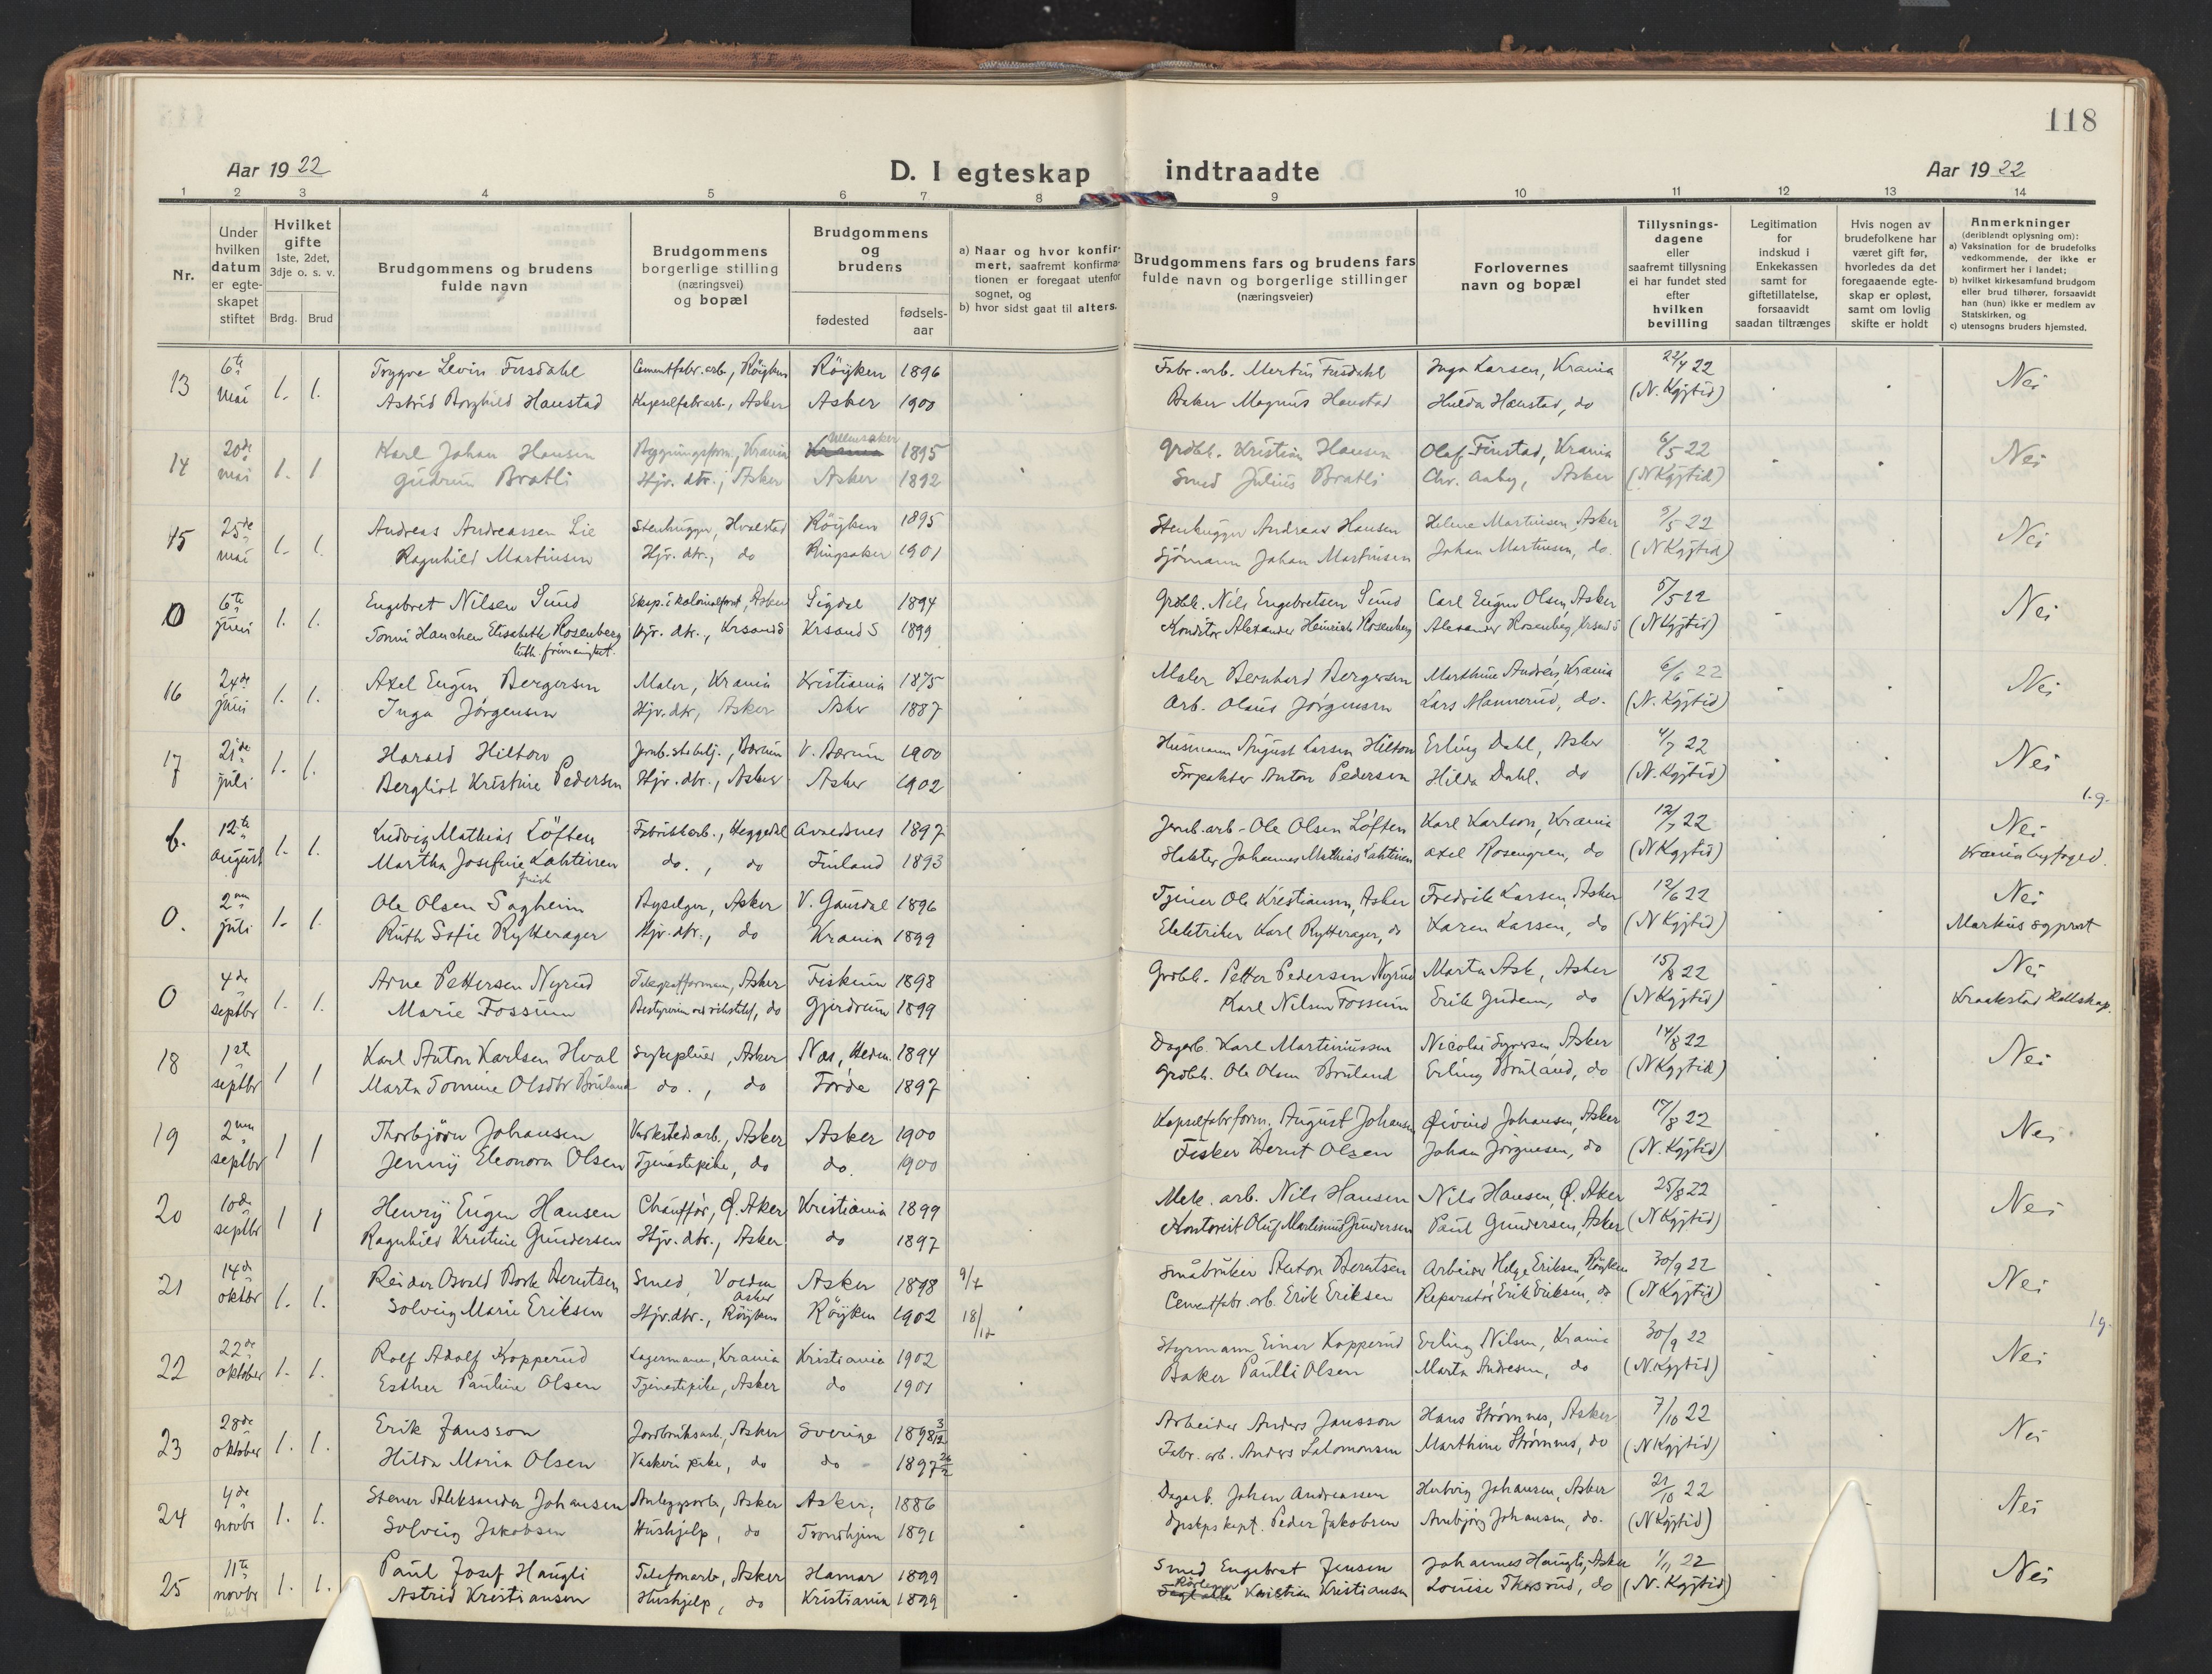 118
Aar 1922
D. I egteskap indtraadte
Aar 1922
1 2 3 4 5 6 7 8 9 10 11 12 13 14
Nr.
Under hvilken datum er egteskapet stiftet
Hvilket gifte 1ste, 2det, 3dje o. s. v.
Brdg. Brud
Brudgommens og brudens fulde navn
Brudgommens borgerlige stilling (næringsvei) og bopæl
Brudgommens og brudens
fødested
fødselsaar
a) Naar og hvor konfirmert, saafremt konfirmationen er foregaat utenfor sognet, og
b) hvor sidst gaat til alters.
Brudgommens fars og brudens fars fulde navn og borgerlige stillinger (næringsveier)
Forlovernes navn og bopæl
Tillysningsdagene eller saafremt tillysning ei har fundet sted efter hvilken bevilling
Legitimation for indskud i Enkekassen samt for giftetillatelse, forsaavidt saadan tiltrænges
Hvis nogen av brudefolkene har været gift før, hvorledes da det foregaaende egteskap er opløst, samt om lovlig skifte er holdt
Anmerkninger (deriblandt oplysning om):
a) Vaksination for de brudefolks vedkommende, der ikke er konfirmert her i landet;
b) hvilket kirkesamfund brudgom eller brud tilhører, forsaavidt han (hun) ikke er medlem av Statskirken, og
c) utensogns bruders hjemsted.
13 6te mai 1. 1. Trygve Levin Fusdahl Cementfabr. arb., Röyken Röyken 1896 Fabr. arb. Martin Fusdahl Inga Larsen, Krania 22/4 22 Nei
Astrid Borghild Haustad Kapselfabr.arb., Asker Asker 1900 Baker Magnus Haustad Hulda Haustad, do (N. Kgjtid)
14 20de mai 1. 1 Karl Johan Hansen Bygningsform., Krania Ullensaker 1895 Grdbr. Kristian Hansen Olaf Finstad, Krania 6/5 22 Nei
Gudrun Bratli Hjv. dtr., Asker Asker 1892 Smed Julius Bratli Chr. Aaby, Asker (N Kgjtid)
15 25de mai 1. 1. Andreas Andreassen Lie Stenhugger, Hvalstad Röyken 1895 Stenhugger Andreas Hansen Helene Martinsen, Asker 9/5 22 Nei
Ragnhild Martinsen Hjv. dtr., do Ringsaker 1901 Sjömann Johan Martinsen Johan Martinsen, do. (N Kgjtid)
0 6te juni 1. 1. Engebret Nilsen Sund Eksp. i kolonialforr., Asker Sigdal 1894 Grdbr. Nils Engebretsen Sund Carl Eugen Olsen, Asker 5/5 22 Nei
Tonni Hanchen Elisabeth Rosenberg Hjv. dtr., Krsand S Krsand S 1899 Konditor Alexander Heinrich Rosenberg Alexander Rosenberg, Krsand S (N Kgjtid)
luth. frimenighet.
16 24de juni 1. 1. Axel Eugen Bergersen Maler, Krania Kristiania 1875 Maler Bernhard Bergersen Marthine Andrén, Krania 6/6 22 Nei
Inga Jörgensen Hjv. dtr, Asker Asker 1887 Arb. Olaus Jörgensen Lars Mannerud, do. (N. Kgjtid)
17 21de juli 1. 1. Harald Hilton Jernb.stabelj., Bærum V. Bærum 1900 Husmann August Larsen Hilton Erling Dahl, Asker 4/7 22 Nei
Bergliot Kristine Pedersen Hjv. dtr., Asker Asker 1902 Forpakter Anton Pedersen Hilda Dahl. do (N. Kgjtid)
6. 12te august 1. 1. Ludvig Mathias Löften Fabrikarb., Heggedal Avaldsnes 1897 Jernb. arb. Ole Olsen Löften Karl Karlson, Krania 12/7 22 Nei
Martha Josefine Lahtinen do., do Finland 1893 Johannes Mathias Lahtinen Axel Rosengren, do (N Kgjtid) Krania byfoged.
finsk
0. 2nn juli 1. 1. Ole Olsen Sagheim Byselger, Asker V. Gausdal 1896 Tjener Ole Kristiansen, Asker Fredrik Larsen, Asker 12/6 22 Nei
Ruth Sofie Rytterager Hjv. dtr., do Krania 1899 Elektriker Karl Rytterager, do Karen Larsen, do (N Kgjtid) Markus sgprst
0 4de septbr 1. 1. Arne Pettersen Nyrud Telegrafforman, Asker Fiskum 1898 Grdbr. Petter Pedersen Nyrud Marta Ask, Asker 15/8 22 Nei
Marie Fossum do Gjerdrum 1899 Karl Nilsen Fossum Erik Gudem, do (N Kgjtid) Kraakstad
18 1ste septbr 1 1 Karl Anton Karlsen Hval Sykepleier, Asker Nes, Hedm. 1894 Dagarb. Karl Martiniussen Nicolai Syversen, Asker 14/8 22 Nei
Marta Tomine Olsdtr Bruland do., do Förde 1897 Grdbr. Ole Olsen Bruland Erling Bruland, do (N Kgjtid)
19 2nn septbr 1 1 Thorbjörn Johansen Verkstedsarb., Asker Asker 1900 Kapselfabr.form. August Johansen Øivind Johansen, Asker 17/8 22 Nei
Jenny Eleonora Olsen Tjenestepike, do do. 1900 Fisker Bernt Olsen Johan Jörgensen, do (N. Kgjtid)
20 10de septbr 1 1 Henry Eugen Hansen Chauffør, Ø. Aker Kristiania 1899 Mek. arb. Nils Hansen Nils Hansen, Ø. Aker 25/8 22 Nei
Ragnhild Kristine Gundersen Hjv. dtr., Asker do 1897 Kontorist Oluf Martinius Gundersen Paul Gundersen, Asker (N Kgjtid)
21 14de oktbr 1. 1. Reidar Osvald Bork Berntsen Smed, Vollen Asker Asker 1898 9/7 Småbruker Anton Berntsen Arbeider Helge Eriksen, Röyken 30/9 22 Nei
Solveig Marie Eriksen Hjv.dtr., Röyken Röyken 1902 18/12 Cementfabr. arb. Erik Eriksen Reparatör Erik Eriksen, do (N Kgjtid)
22 22de oktober 1. 1. Rolf Adolf Kopperud Lagermann, Krania Kristiania 1902 Styrmann Einar Kopperud Erling Nilsen, Krania 30/9 22 Nei
Esther Pauline Olsen Tjenestepike, Asker do 1901 Baker Paulli Olsen Marta Andresen, do (N. Kgjtid)
23 28de oktober 1. 1. Erik Jansson Jordbruksarb., Asker Sverige 1898 3/12 Arbeider Anders Jansson Hans Strömnes, Asker 7/10 22 Nei
Hilda Maria Olsen Vaskeripike, do do 1897 26/2 Fabr. arb. Anders Salomonsen Marthine Strömnes, do (N Kgjtid)
24 4de novbr 1. 1. Stener Aleksander Johansen Anleggsarb., Asker Asker 1886 Dagarb. Johan Andreassen Hedvig Johansen, Asker 21/10 22 Nei
Solveig Jakobsen Hushjelp, do Trondhjem 1891 Dpskpskapt. Peder Jakobsen Arnbjörg Johansen, do. (N Kgjtid)
25 11te novbr 1. 1. Paul Josef Haugli Telefonarb., Asker Hamar 1899 Smed Engebret Jensen Johannes Haugli, Asker 1/11 22 Nei
Astrid Kristiansen Hushjelp, do Kristiania 1899 Kristian Kristiansen Louise Thorsrud, do (N. Kgjtid)